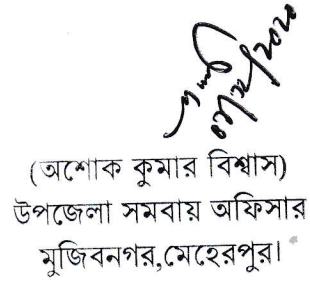 (অশোক কুমার বিশ্বাস)
উপজেলা সমবায় অফিসার
মুজিবনগর,মেহেরপুর।